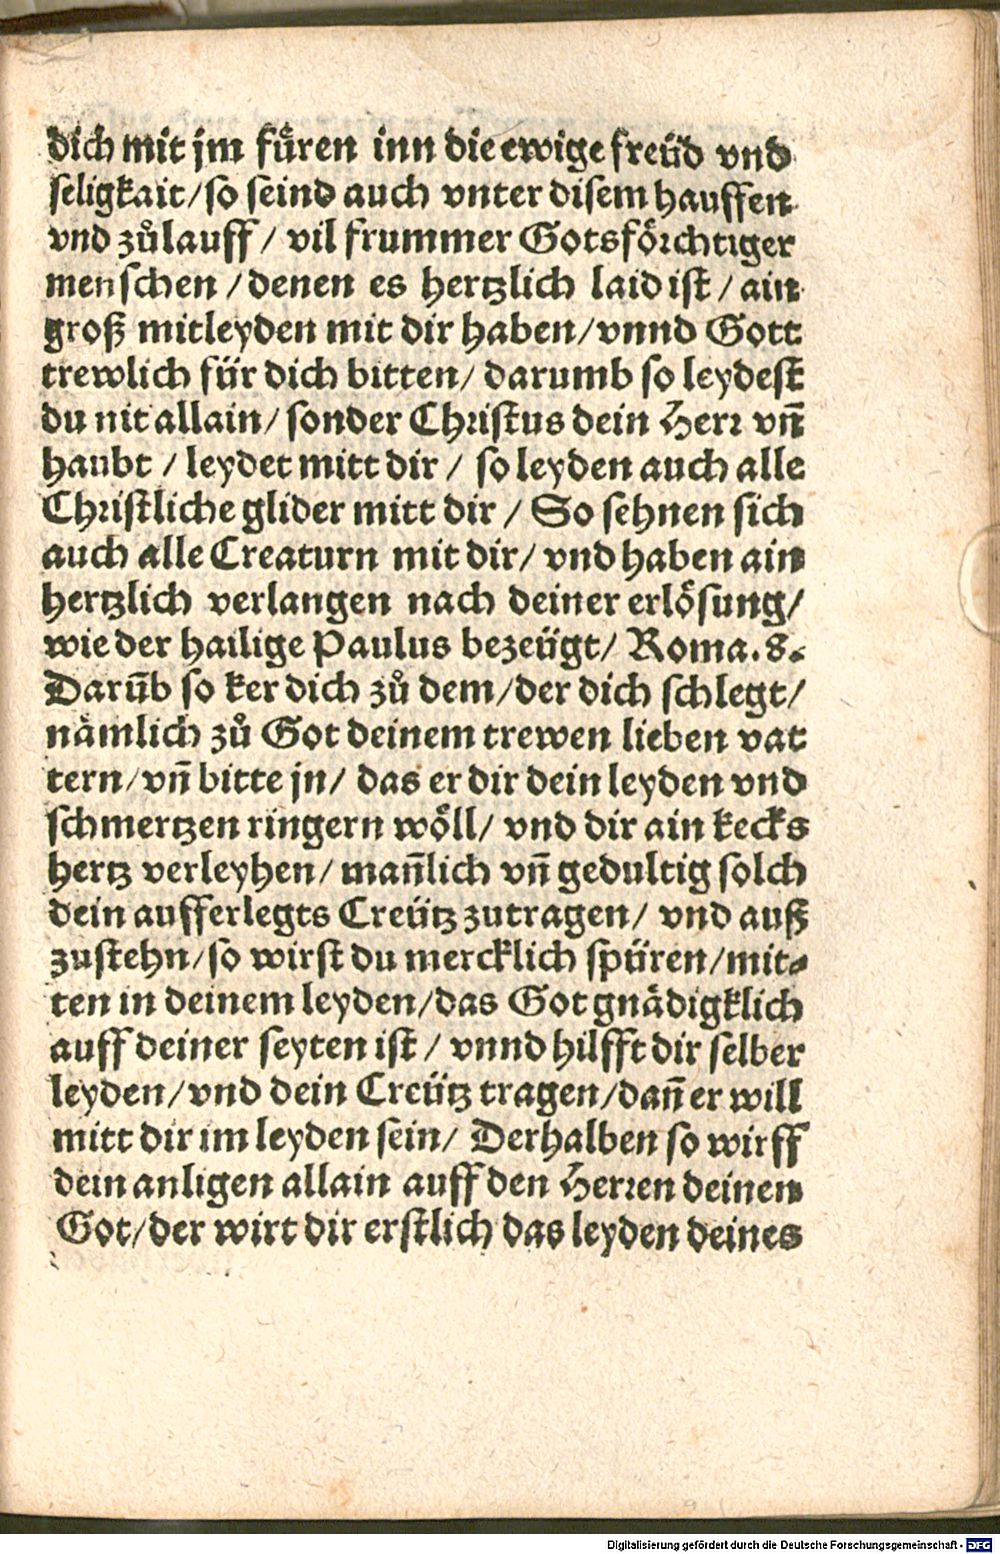 dich mit jm fuͤren inn die ewige freüd vnd
seligkait/so seind auch vnter disem hauffen
vnd zuͦlauff / vil frummer Gotsfoͤrchtiger
menschen / denen es hertzlich laid ist / ain
groß mitleyden mit dir haben/vnnd Gott
trewlich für dich bitten/ darumb so leydest
du nit allain/ sonder Christus dein Herr vn̄
haubt / leydet mitt dir / so leyden auch alle
Christliche glider mitt dir / So sehnen sich
auch alle Creaturn mit dir/ vnd haben ain
hertzlich verlangen nach deiner erloͤsung/
wie der hailige Paulus bezeügt/ Roma.8.
Darūb so ker dich zuͦ dem/der dich schlegt/
naͤmlich zuͦ Got deinem trewen lieben vat
tern/vn̄ bitte jn/ das er dir dein leyden vnd
schmertzen ringern woͤll/ vnd dir ain kecks
hertz verleyhen/ man̄lich vn̄ gedultig solch
dein aufferlegts Creütz zutragen/ vnd auß
zustehn/so wirst du mercklich spüren/mit⸗
ten in deinem leyden/das Got gnaͤdigklich
auff deiner seyten ist / vnnd hilfft dir selber
leyden/vnd dein Creütz tragen/dan̄ er will
mitt dir im leyden sein/ Derhalben so wirff
dein anligen allain auff den Herren deinen
Got/der wirt dir erstlich das leyden deines
Digitalisierung gefördert durch die Deutsche Forschungsgemeinschaft - DFG